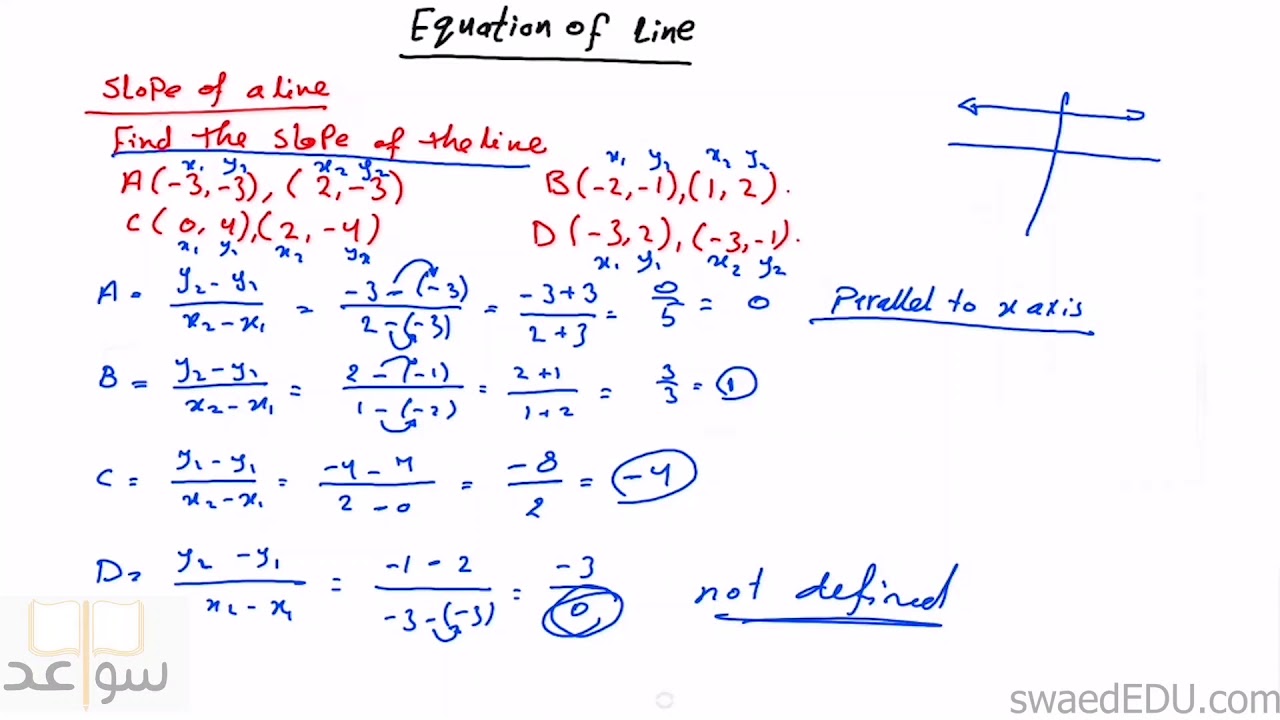 Equation of Line
Slope of a line
Find the slope of the line
x₁ y₂ x₂ y₂ x₁ y₂ x₂ y₂
A(-3,-3), (2,-3) B(-2,-1),(1,2).
C(0,4),(2,-4) D(-3,2),(-3,-1).
x₁ y₁ x₂ x₁ y₁ x₂ y₂
A = (y₂ - y₁)/(x₂ - x₁) = (-3 - (-3))/(2 - (-3)) = (-3+3)/(2+3) = 0/5 = 0 Perallel to x axis
B = (y₂ - y₁)/(x₂ - x₁) = (2 - (-1))/(1 - (-2)) = (2+1)/(1+2) = 3/3 = 1
C = (y₂ - y₁)/(x₂ - x₁) = (-4 - 4)/(2 - 0) = -8/2 = -4
D = (y₂ - y₁)/(x₂ - x₁) = (-1 - 2)/(-3 - (-3)) = -3/0 not defined
سواعد
swaedEDU.com